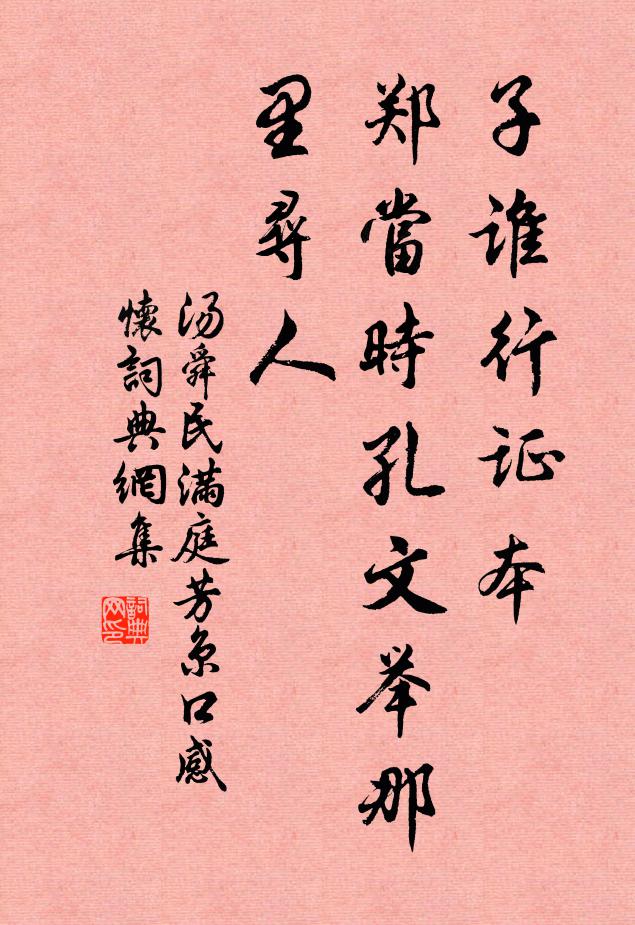 子谁行证本
郑當時孔文举那
里尋人
汤舜民满庭芳京口感
懷詞典網集
詞典网印